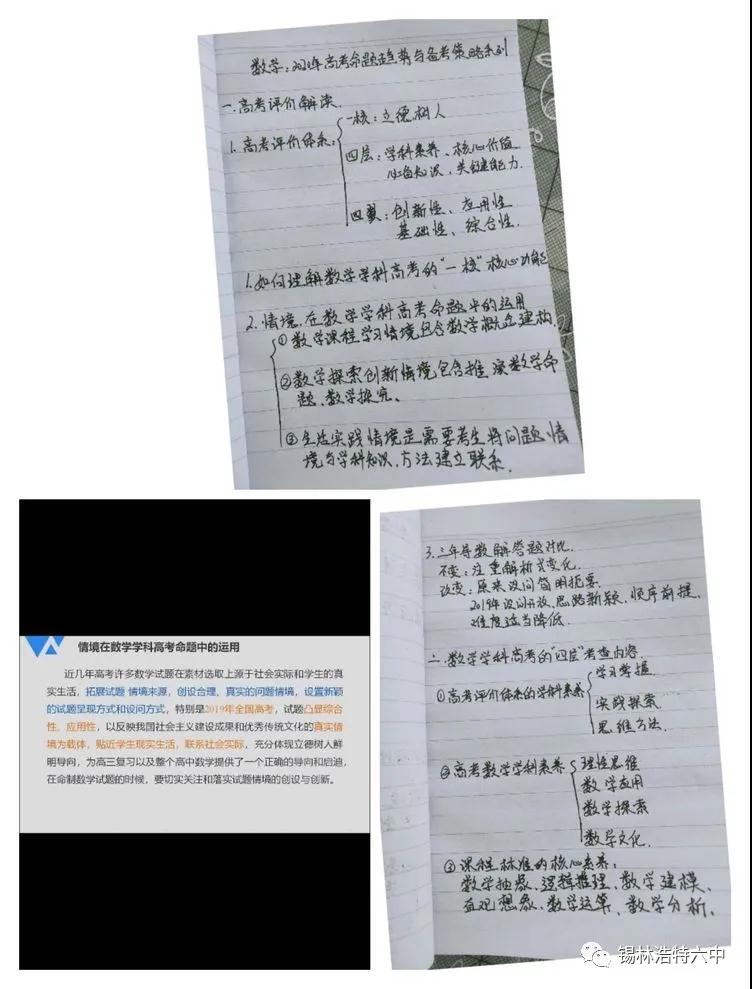 数学:2020年高考命题趋势与备考策略系列
一.高考评价解读.
1.高考评价体系:
一核:立德树人
四层:学科素养、核心价值
必备知识、关键能力.
四翼:创新性、应用性
基础性、综合性.
1.如何理解数学学科高考的"一核"核心功能
2.情境.在数学学科高考命题中的运用
①数学课程学习情境包含数学概念建构.
②数学探索创新情境包含推演数学命
题.数学探究、
③生活实践情境是需要考生将问题情
境与学科知识.方法建立联系.
情境在数学学科高考命题中的运用
近几年高考许多数学试题在素材选取上源于社会实际和学生的真
实生活，拓展试题 情境来源，创设合理、真实的问题情境，设置新颖
的试题呈现方式和设问方式，特别是2019年全国高考，试题凸显综合
性、应用性，以反映我国社会主义建设成果和优秀传统文化的真实情
境为载体，贴近学生现实生活，联系社会实际，充分体现立德树人鲜
明导向，为高三复习以及整个高中数学提供了一个正确的导向和启迪，
在命制数学试题的时候，要切实关注和落实试题情境的创设与创新。
3.三年导数解答题对比.
不变:注重解析式变化.
改变:原来设问简明扼要.
2019年设问开放、思路新颖、顺序前提、
难度适当降低.
二.数学学科高考的"四层"考查内容.
①高考评价体系的学科素养
学习掌握
实践探索
思维方法.
②高考数学学科素养
理性思维
数学应用
数学探索
数学文化.
③课程标准的核心素养:
数学抽象、逻辑推理、数学建模、
直观想象、数学运算、数学分析、
锡林浩特六中